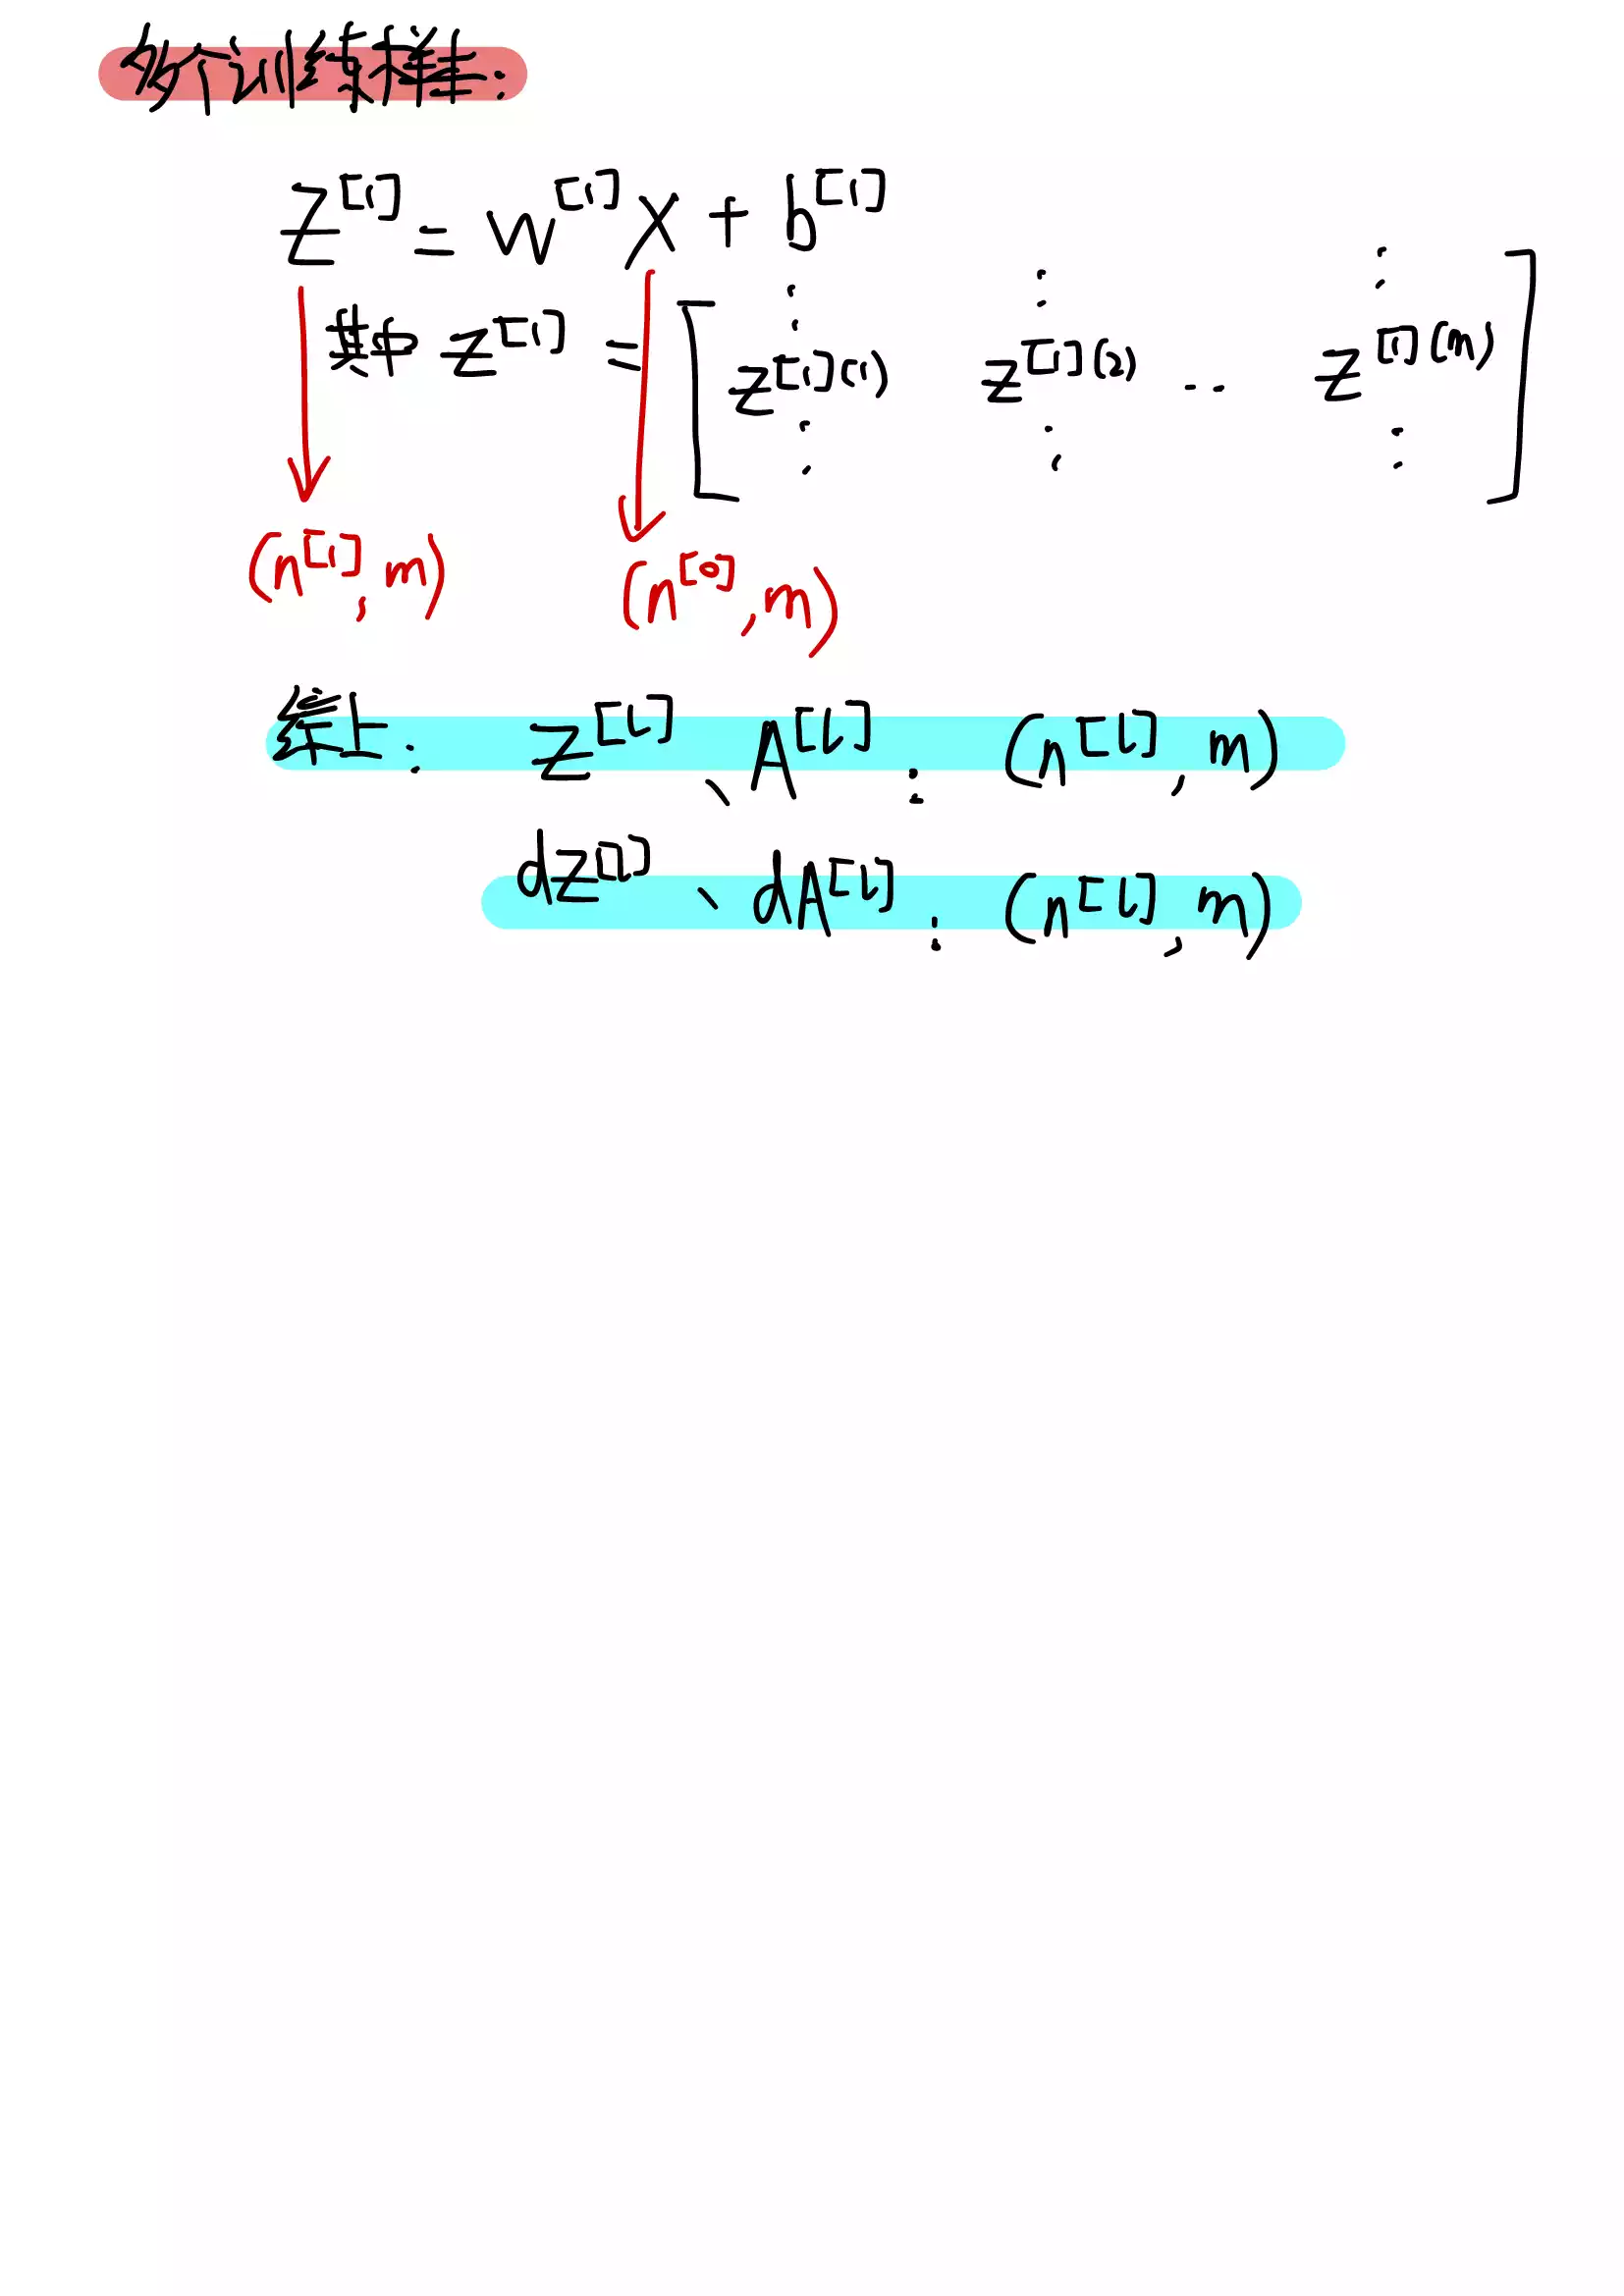 多个训练样本:
Z^[1] = W^[1] X + b^[1]
其中 Z^[1] = [ z^[1](1) z^[1](2) ·· z^[1](m) ]
(n^[1], m) (n^[0], m)
综上: Z^[l]、A^[l]: (n^[l], m)
dZ^[l]、dA^[l]: (n^[l], m)